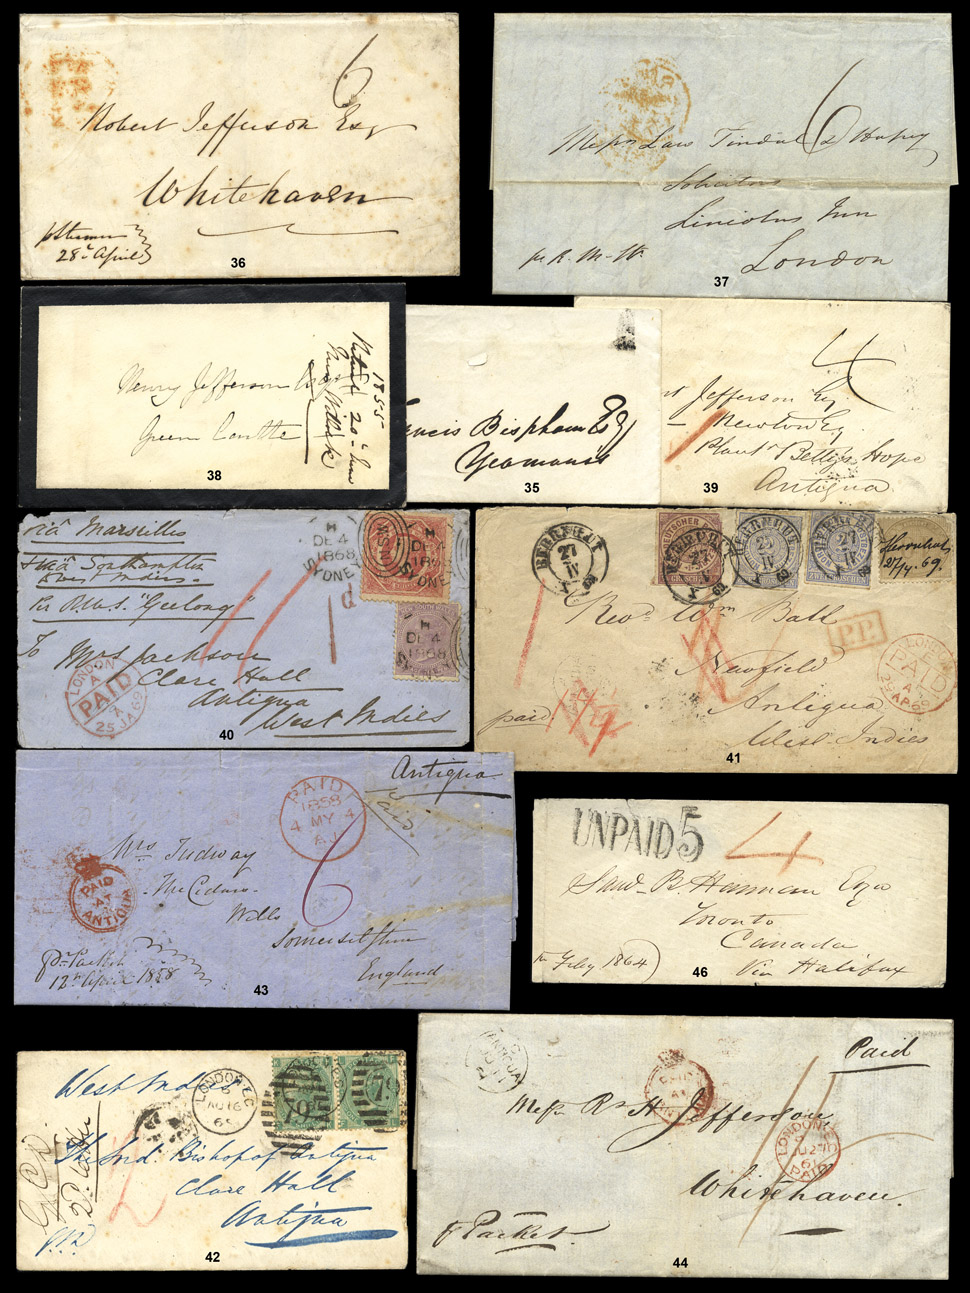 6
Robert Jefferson Esq
Whitehaven
p Steamer
28th April
36
6
Messrs Law Tindal &
Solicitors
Lincolns Inn
London
37
Henry Jefferson Esqr
Green Castle
1855
20th June
38
Francis Bispham Esq
Yeamans
35
4
Jefferson Esq
Newton Esq
Plantn Betty's Hope
Antigua
39
via Marseilles
&via Southampton
West Indies
Per R.M.S. "Geelong"
To Mrs Jackson
Clare Hall
Antigua
West Indies
H
DE 4
1868
SYDNEY
H
DE 4
SYDNEY
H
DE 4
1868
1 d
LONDON
A
PAID
25 JA 69
40
HERRNHUT
27
IV
69
GROSCHEN
HERRNHUT
27
IV
ZWEI GROSCHEN
Herrnhut
27/IV. 69.
Revd Wm Ball
P.P.
Newfield
Antigua
West Indies
paid
LONDON
PAID
29 AP 69
41
Antigua
Paid
PAID
1858
4 MY 4
Mrs Tudway
The Cedars
Wells
Somersetshire
England
6
PAID
AT
ANTIGUA
pr Packet
12th April 1858
43
UNPAID 5
4
Saml B Harman Esqr
Toronto
Canada
Via Halifax
Feby 1864
46
West Indies
LONDON E.C
AU 16
The Lord Bishop of Antigua
Clare Hall
Antigua
42
ANTIGUA
Paid
PAID
AT
Messrs R & H Jefferson
Whitehaven
LONDON
61
PAID
p Packet
44